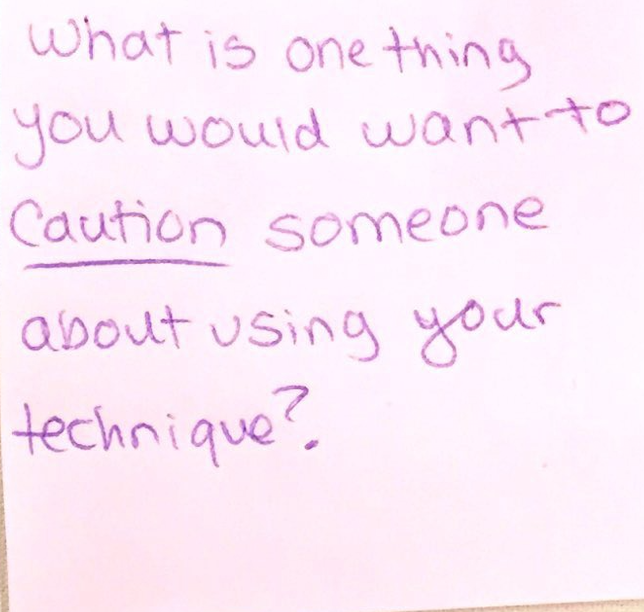 What is one thing
you would want to
Caution someone
about using your
technique?